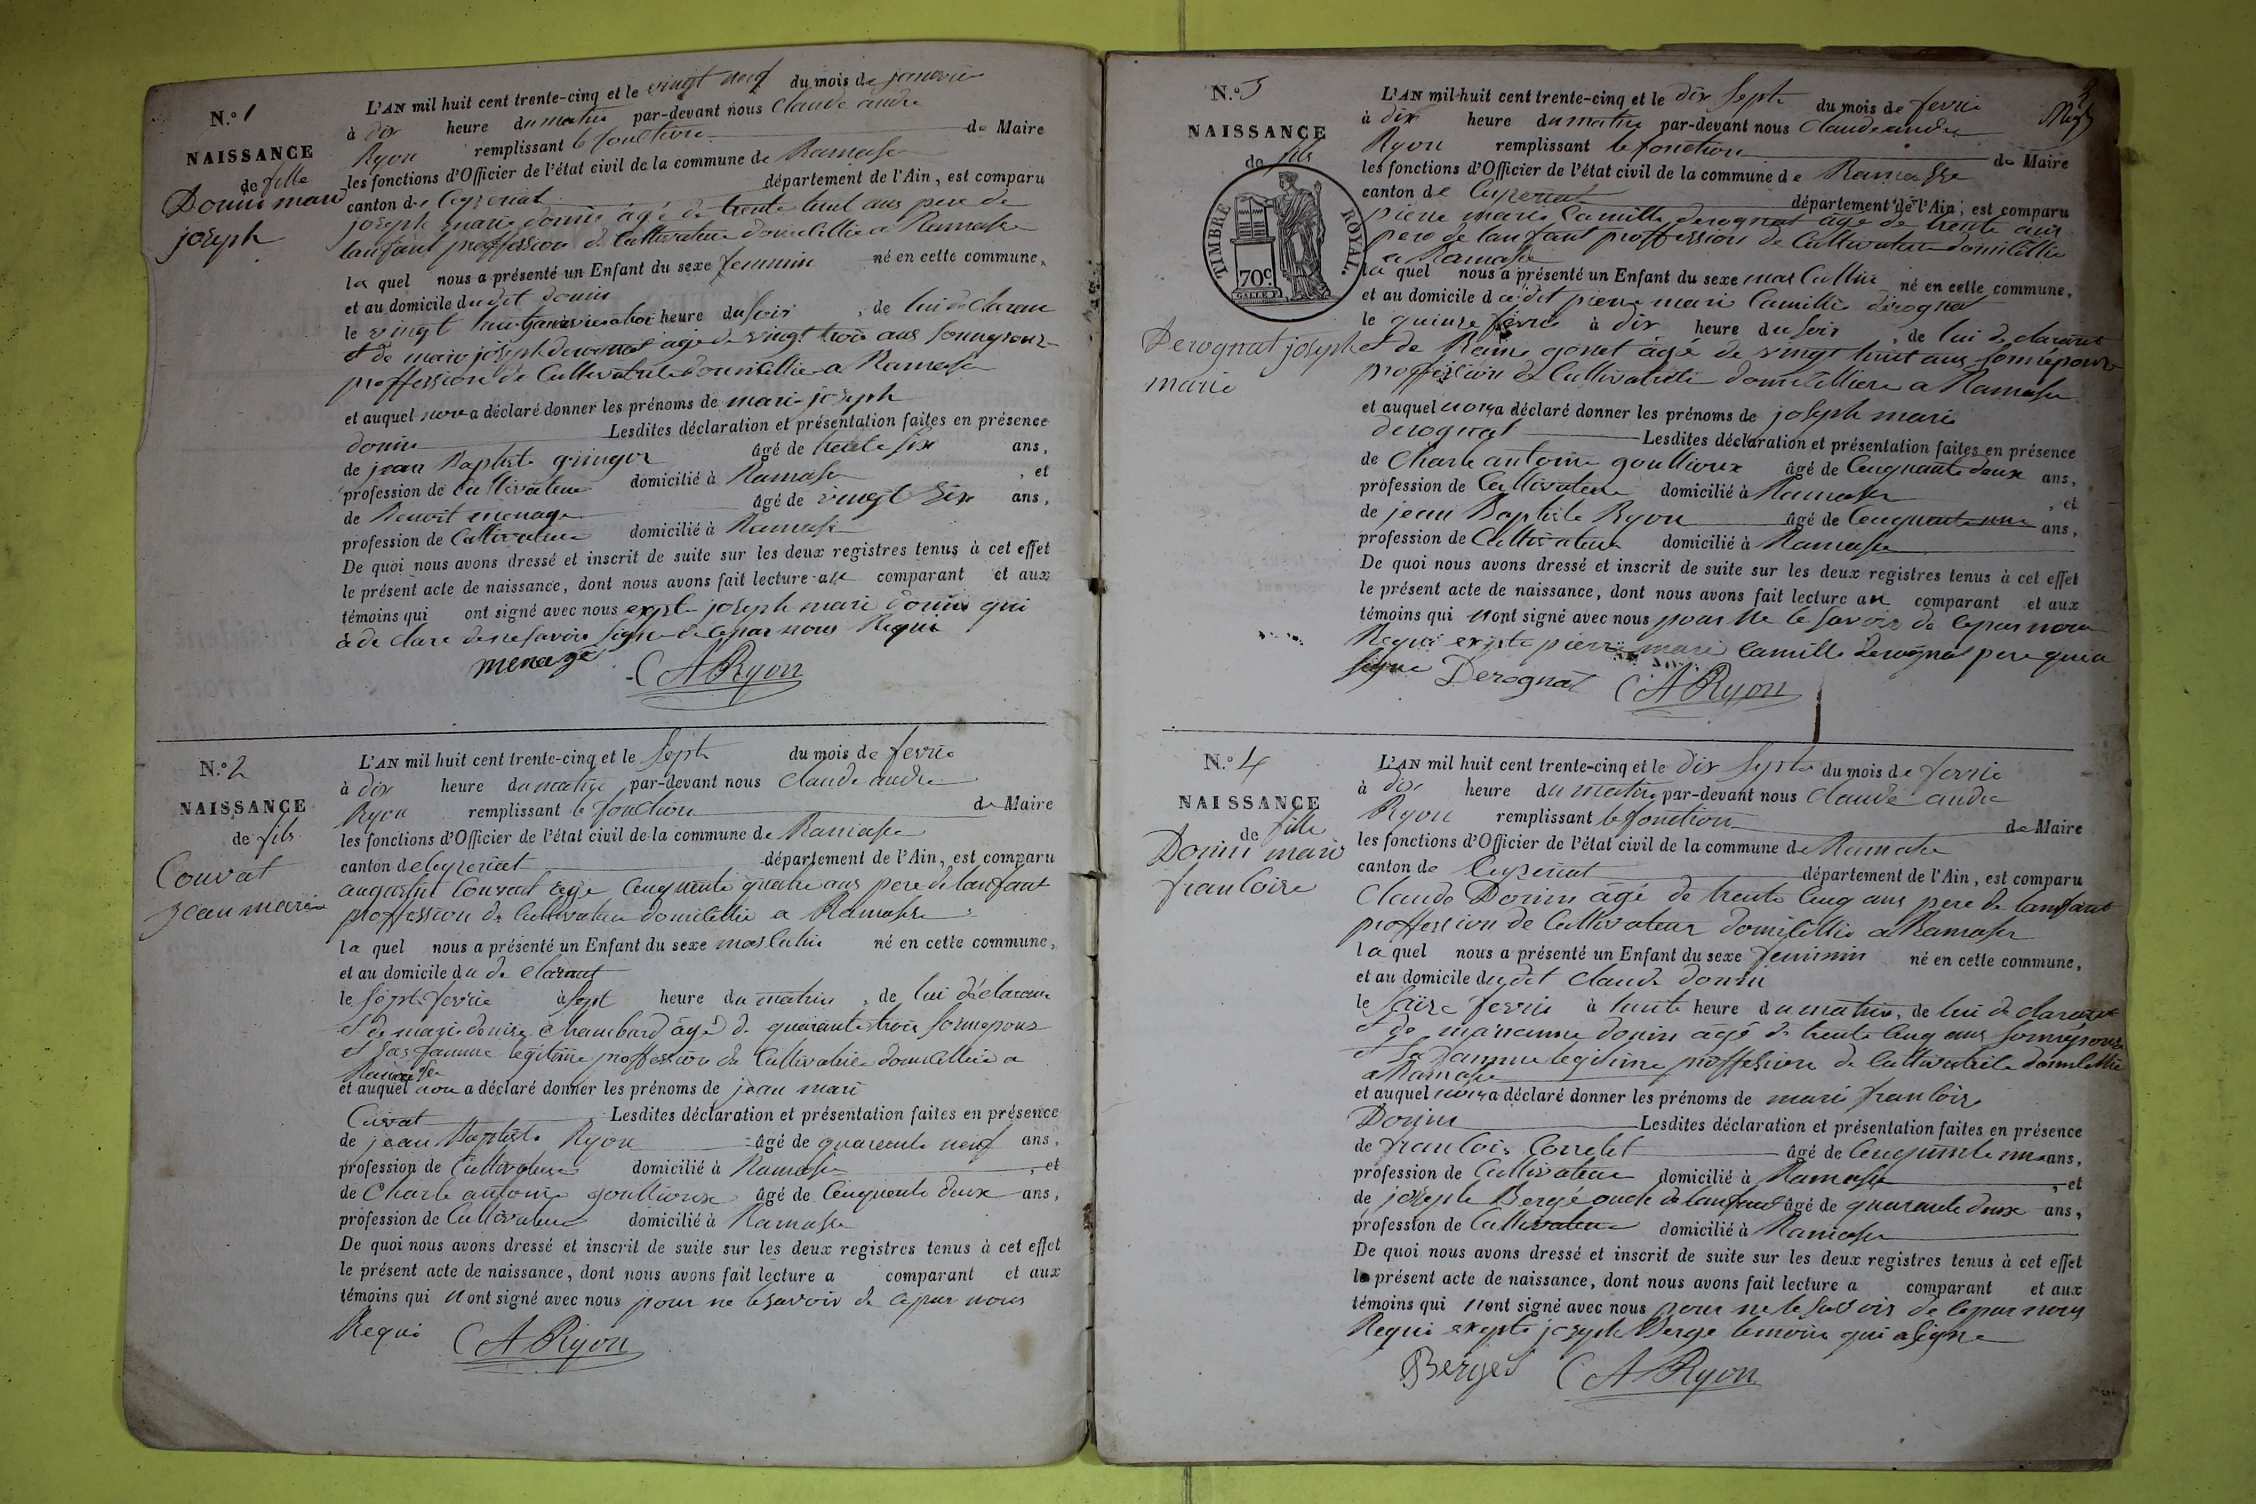 N.º 1
NAISSANCE
de fille
Donin marie
joseph
L'AN mil huit cent trente-cinq et le vingt neuf du mois de janvier
à dix heure du matin par-devant nous Claude andre
Ryon remplissant le fonction de Maire
les fonctions d'Officier de l'état civil de la commune de Ramasse
canton de Ceyzeriat département de l'Ain, est comparu
joseph marie donin âgé de trente huit ans pere de
lanfant proffession de Cultivateur domicillie a Ramasse
la quel nous a présenté un Enfant du sexe feminin né en cette commune,
et au domicile du dit donin
le vingt huit janvier a heure du soir, de lui declarant
et de marie joseph derognat agé de vingt trois ans son epouse
proffession de Cultivatrice domicillie a Ramasse
et auquel nous a déclaré donner les prénoms de marie joseph
donin Lesdites déclaration et présentation faites en présence
de jean Baptiste gringoz âgé de trente six ans,
profession de Cultivateur domicilié à Ramasse, et
de Benoit menage âgé de vingt six ans,
profession de Cultivateur domicilié à Ramasse
De quoi nous avons dressé et inscrit de suite sur les deux registres tenus à cet effet
le présent acte de naissance, dont nous avons fait lecture au comparant et aux
témoins qui ont signé avec nous exepte joseph marie donin qui
à de clare de ne savoir signe de ce par nous Requi
menage CA Ryon
N.º 2
NAISSANCE
de fils
Couvat
jean marie
L'AN mil huit cent trente-cinq et le sept du mois de fevrie
à dix heure du matin par-devant nous Claude andre
Ryon remplissant le fonction de Maire
les fonctions d'Officier de l'état civil de la commune de Ramasse
canton de Ceyzeriat département de l'Ain, est comparu
augustin Couvat âgé Cinquante quatre ans pere de lanfant
proffession de Cultivateur domicillie a Ramasse
la quel nous a présenté un Enfant du sexe masculin né en cette commune,
et au domicile du de clarant
le sept fevrie à sept heure du matin, de lui déclarant
et de marie denise Chambard âgé de quarante trois son epouse
et sas famme legitime proffession de Cultivatrice domicillie a
Ramasse
et auquel nou a déclaré donner les prénoms de jean mari
Cuvat Lesdites déclaration et présentation faites en présence
de jean Baptiste Ryon âgé de quarante neuf ans,
profession de Cultivateur domicilié à Ramasse, et
de Charle antoine goullioux âgé de Cinquante deux ans,
profession de Cultivateur domicilié à Ramasse
De quoi nous avons dressé et inscrit de suite sur les deux registres tenus à cet effet
le présent acte de naissance, dont nous avons fait lecture a comparant et aux
témoins qui nont signé avec nous pour ne le savoir de ce par nous
Requi CA Ryon
N.º 3
NAISSANCE
de fils
TIMBRE ROYAL.
70c
Derognat joseph
marie
L'AN mil huit cent trente-cinq et le dix sept du mois de fevrie
à dix heure du matin par-devant nous Claude andre
Ryon remplissant le fonction de Maire
les fonctions d'Officier de l'état civil de la commune de Ramasse
canton de Ceyzeriat département de l'Ain, est comparu
pierre marie Camille derognat âgé de trente ans
pere de lanfant proffession de Cultivateur domicillie
a Ramasse
la quel nous a présenté un Enfant du sexe masCullin né en cette commune,
et au domicile du dit pierre marie Camille derognat
le quinze fevrie à dix heure du soir, de lui de clarant
et de Reine gonet âgé de vingt huit ans son épouse
proffession de Cultivatrice domicilliere a Ramasse
et auquel nous a déclaré donner les prénoms de joseph marie
derognat Lesdites déclaration et présentation faites en présence
de Charle antoine goullioux âgé de Cinquante deux ans,
profession de Cultivateur domicilié à Ramasse, et
de jean Baptiste Ryon âgé de Cinquante une ans,
profession de Cultivateur domicilié à Ramasse
De quoi nous avons dressé et inscrit de suite sur les deux registres tenus à cet effet
le présent acte de naissance, dont nous avons fait lecture au comparant et aux
témoins qui nont signé avec nous pour ne le savoir de ce par nous
Requi exepte pierre marie Camille derognat pere qui a
signe Derognat CA Ryon
N.º 4
NAISSANCE
de fille
Donin marie
franCoise
L'AN mil huit cent trente-cinq et le dix sept du mois de fevrie
à dix heure du matin par-devant nous Claude andre
Ryon remplissant le fonction de Maire
les fonctions d'Officier de l'état civil de la commune de Ramasse
canton de Ceyzeriat département de l'Ain, est comparu
Claude Donin âgé de trente Cinq ans pere de lanfant
proffession de Cultivateur domicillie a Ramasse
la quel nous a présenté un Enfant du sexe feminin né en cette commune,
et au domicile du dit Claude donin
le saize fevrie à huit heure du matin, de lui de clarant
et de marianne donin âgé de trente Cinq ans son épouse
et sa famme legitime proffession de Cultivatrice domicillie
a Ramasse
et auquel nous a déclaré donner les prénoms de marie franCoise
Donin Lesdites déclaration et présentation faites en présence
de franCois Corretet âgé de Cinquante une ans,
profession de Cultivateur domicilié à Ramasse, et
de joseph Berge oncle de lanfant âgé de quarante deux ans,
profession de Cultivateur domicilié à Ramasse
De quoi nous avons dressé et inscrit de suite sur les deux registres tenus à cet effet
le présent acte de naissance, dont nous avons fait lecture a comparant et aux
témoins qui nont signé avec nous pour ne le savoir de ce par nous
Requi exepte joseph Berge temoin qui a signe
Berged CA Ryon